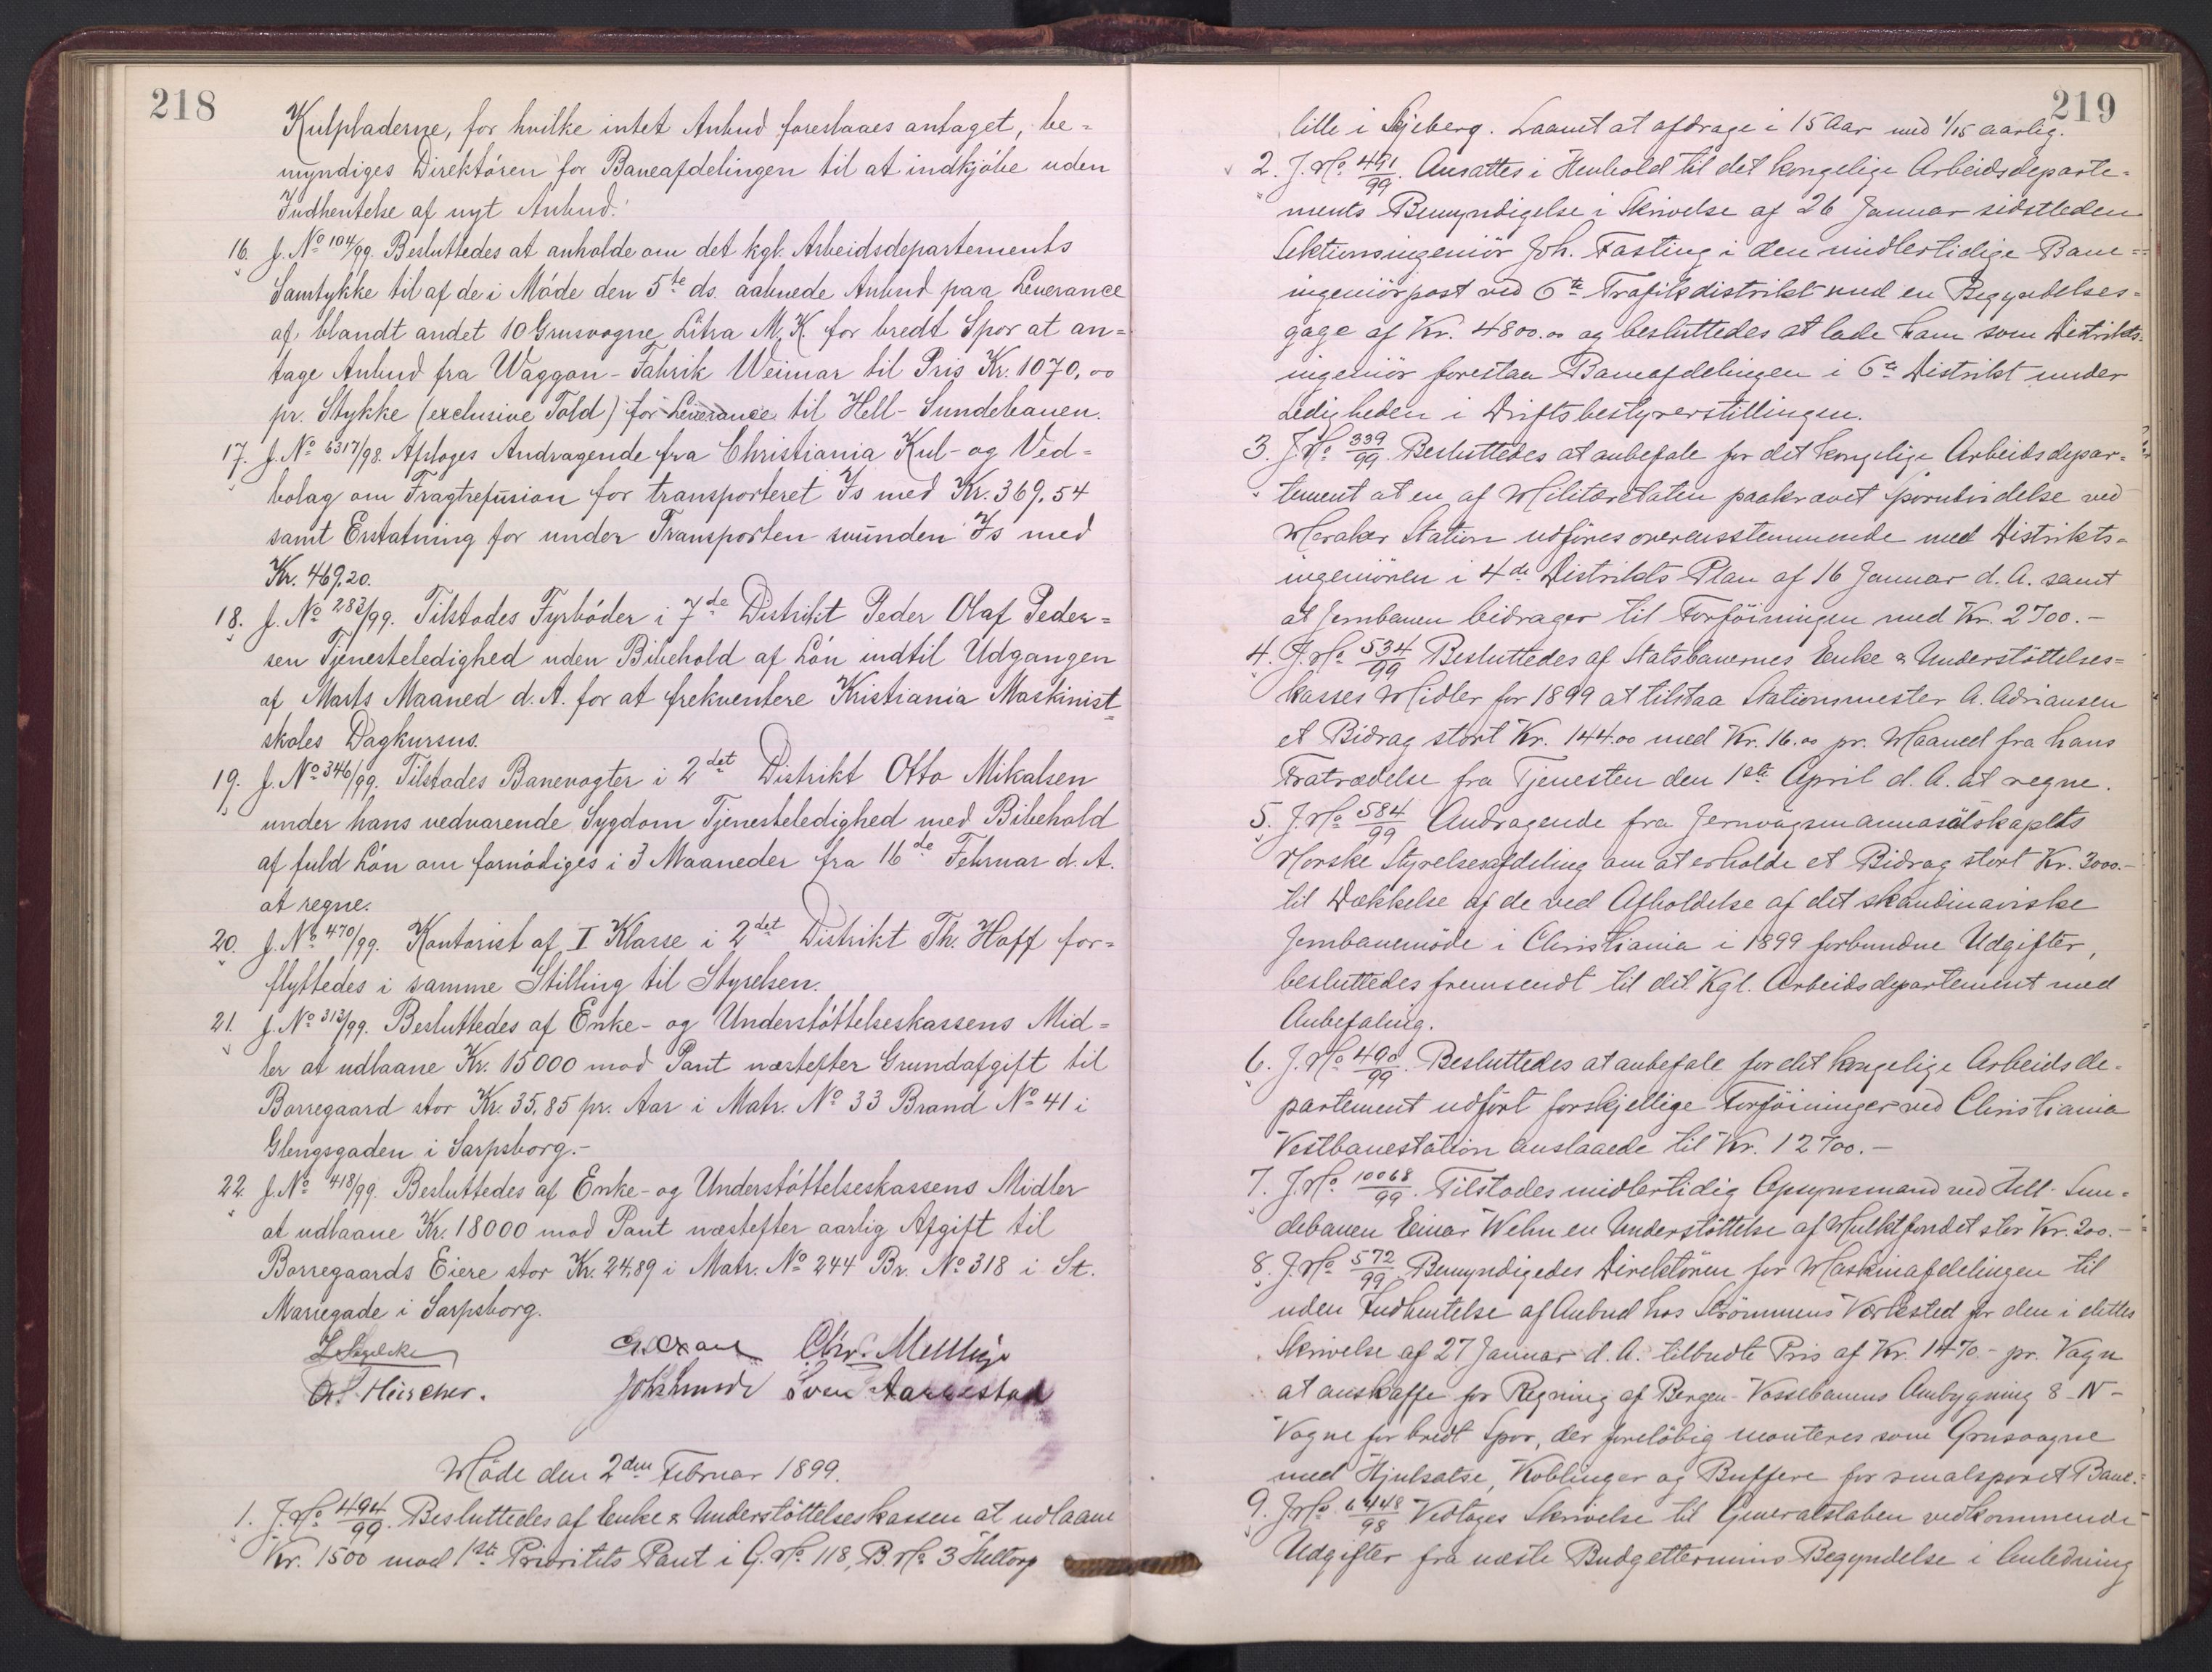 218
Kulpladerne, for hvilke intet Anbud foreslaaes antaget, be=
myndiges Direktören for Baneafdelingen til at indkjöbe uden
Indhentelse af nyt Anbud.
16. J. No 104/99. Besluttedes at anholde om det kgl. Arbeidsdepartements
Samtykke til af de i Möde den 5te ds. aabnede Anbud paa Leverance
af blandt andet 10 Grusvogne Litra M.K for bredt Spor at an=
tage Anbud fra Waggon-Fabrik Weimar til Pris Kr. 1070,00
pr. Stykke (exclusive Told) for Leverance til Hell-Sundebanen.
17. J. No 6317/98. Afsloges Andragende fra Christiania Kul- og Ved=
bolag om Fragtrefusion for transporteret Is med Kr. 369,54
samt Erstatning for under Transporten svunden Is med
Kr. 469,20.
18. J. No 283/99. Tilstodes Fyrböder i 7de Distrikt Peder Olaf Peder=
sen Tjenesteledighed uden Bibehold af Lön indtil Udgangen
af Marts Maaned d. A. for at frekventere Kristiania Maskinist=
skoles Dagkursus.
19. J. No 346/99. Tilstodes Banevogter i 2det Distrikt Otto Mikalsen
under hans vedvarende Sygdom Tjenesteledighed med Bibehold
af fuld Lön om fornödiges i 3 Maaneder fra 16de Februar d. A.
at regne.
20. J. No 470/99. Kontorist af I Klasse i 2det Distrikt Th. Hoff for=
flyttedes i samme Stilling til Styrelsen.
21. J. No 313/99. Besluttedes af Enke- og Understöttelseskassens Mid=
ler at udlaane Kr. 15000 mod Pant næstefter Grundafgift til
Borregaard stor Kr. 35,85 pr. Aar i Matr. No 33 Brand No 41 i
Glengsgaden i Sarpsborg.-
22. J. No 418/99. Besluttedes af Enke- og Understöttelseskassens Midler
at udlaane Kr. 18000 mod Pant næstefter aarlig Afgift til
Borregaards Eiere stor Kr. 24,89 i Matr. No 244 Br. No 318 i St.
Mariegade i Sarpsborg.
Chr.
Sven Aarrestad
Möde den 2den Februar 1899.
1. J. No 494/99. Besluttedes af Enke & Understöttelseskassen at udlaane
Kr. 1500 mod 1ste Prioritets Pant i G. No 118, B. No 3
219
lille i Skjeberg. Laanet at afdrage i 15 Aar med 1/15 aarlig.
2. J. No 491/99. Ansattes i Henhold til det kongelige Arbeidsdeparte=
ments Bemyndigelse i Skrivelse af 26 Januar sidstleden
Sektionsingeniör Joh. Fasting i den midlertidige Bane=
ingeniörpost ved 6te Trafikdistrikt med en Begyndelses=
gage af Kr. 4800.00 og besluttedes at lade ham som Distrikts=
ingeniör forestaa Baneafdelingen i 6te Distrikt under
Ledigheden i Driftsbestyrerstillingen.
3. J. No 339/99. Besluttedes at anbefale for det kongelige Arbeidsdepar=
tement at en af Militæretaten paakrævet Sporudvidelse ved
Meraker Station udföres overensstemmende med Distrikts=
ingeniören i 4de Distrikts Plan af 16 Januar d. A. samt
at Jernbanen bidrager til Forföiningen med Kr. 2700.-
4. J. No 534/99 Besluttedes af Statsbanernes Enke & Understöttelses=
kasses Midler for 1899 at tilstaa Stationsmester A. Adriansen
et Bidrag stort Kr. 144.00 med Kr. 16.00 pr. Maaned fra hans
Fratrædelse fra Tjenesten den 1ste April d. A. at regne.
5. J. No 584/99 Andragende fra Jernvägsmannasälskapets
Norske Styrelsesafdeling om at erholde et Bidrag stort Kr. 3000.-
til Dækkelse af de ved Afholdelse af det skandinaviske
Jernbanemöde i Christiania i 1899 forbundne Udgifter,
besluttedes fremsendt til det Kgl. Arbeidsdepartement med
Anbefaling.
6. J. No 490/99. Besluttedes at anbefale for det kongelige Arbeidsde=
partement udfört forskjellige Forföininger ved Christiania
Vestbanestation anslaaede til Kr. 12700.-
7. J. No 10068/99. Tilstodes midlertidig Opsynsmand ved Hell-Sun=
debanen Einar Wehn en Understöttelse af Mulktfondet stor Kr. 200.-
8. J. No 572/99 Bemyndigedes Direktören for Maskinafdelingen til
uden Indhentelse af Anbud hos Strömmens Værksted for den i dettes
Skrivelse af 27 Januar d. A. tilbudte Pris af Kr. 1470.- pr. Vogn
at anskaffe for Regning af Bergen-Vossebanens Ombygning 8 N-
Vogne for bredt Spor, der foreløbig monteres som Grusvogne
med Hjulsatse, Koblinger og Buffere for smalsporet Bane.
9. J. No 6448/98 Vedtoges Skrivelse til Generalstaben vedkommende
Udgifter fra næste Budgettermins Begyndelse i Anledning